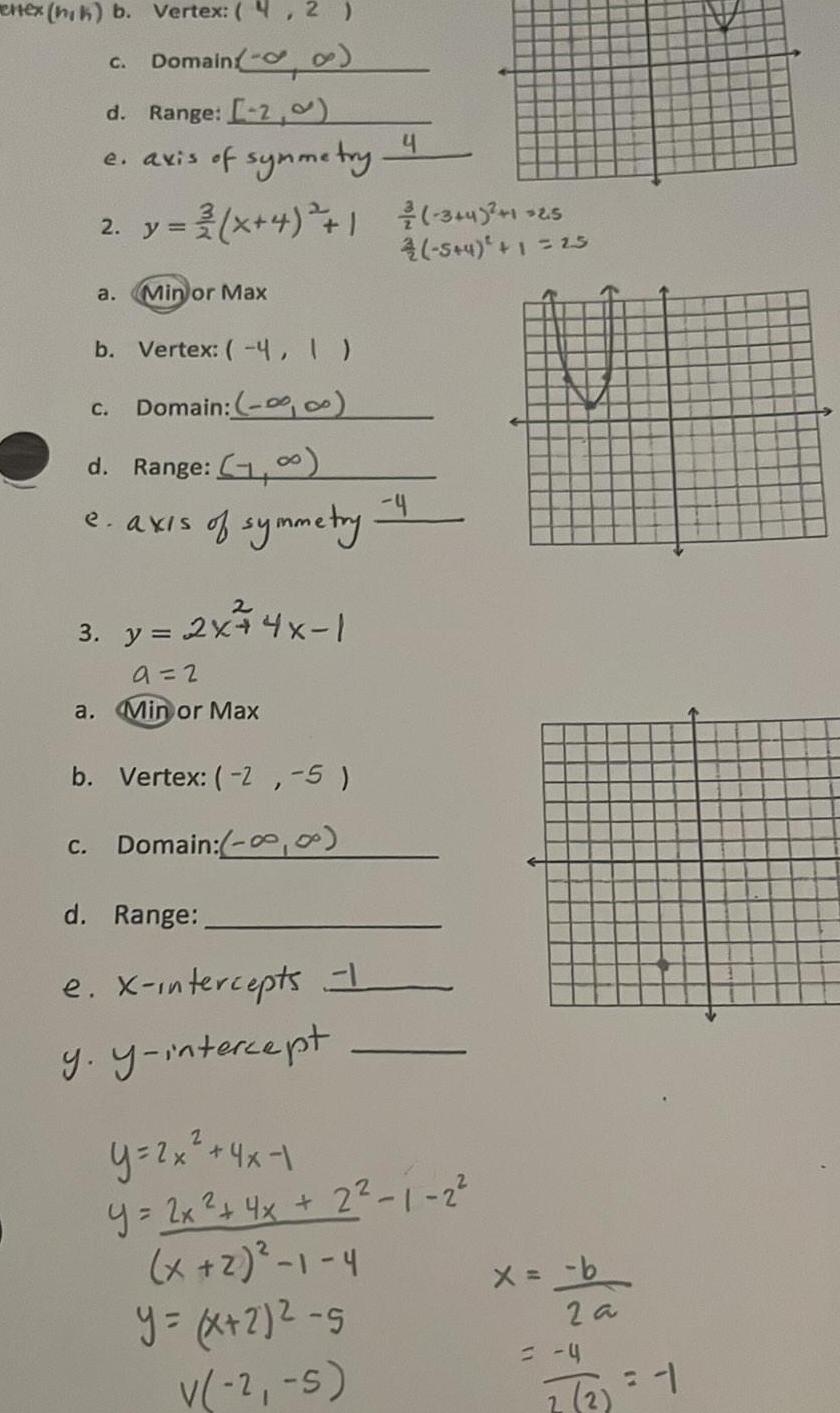 b. Vertex: ( 4 , 2 )
c. Domain: (-∞, ∞)
d. Range: [-2, ∞)
e. axis of symmetry 4
2. y = 3/2 (x+4)² + 1
3/2 (-3+4)² + 1 = 2.5
3/2 (-5+4)² + 1 = 2.5
a. Min or Max
b. Vertex: ( -4 , 1 )
c. Domain: (-∞, ∞)
d. Range:
e. axis of symmetry -4
3. y = 2x² + 4x - 1
a = 2
a. Min or Max
b. Vertex: ( -2 , -5 )
c. Domain: (-∞, ∞)
d. Range:
e. x-intercepts -1
y. y-intercept
y = 2x² + 4x - 1
y = 2x² + 4x + 2² - 1 - 2²
(x + 2)² - 1 - 4
y = (x+2)² - 5
V(-2, -5)
x = -b / 2a
= -4 / 2(2) = -1